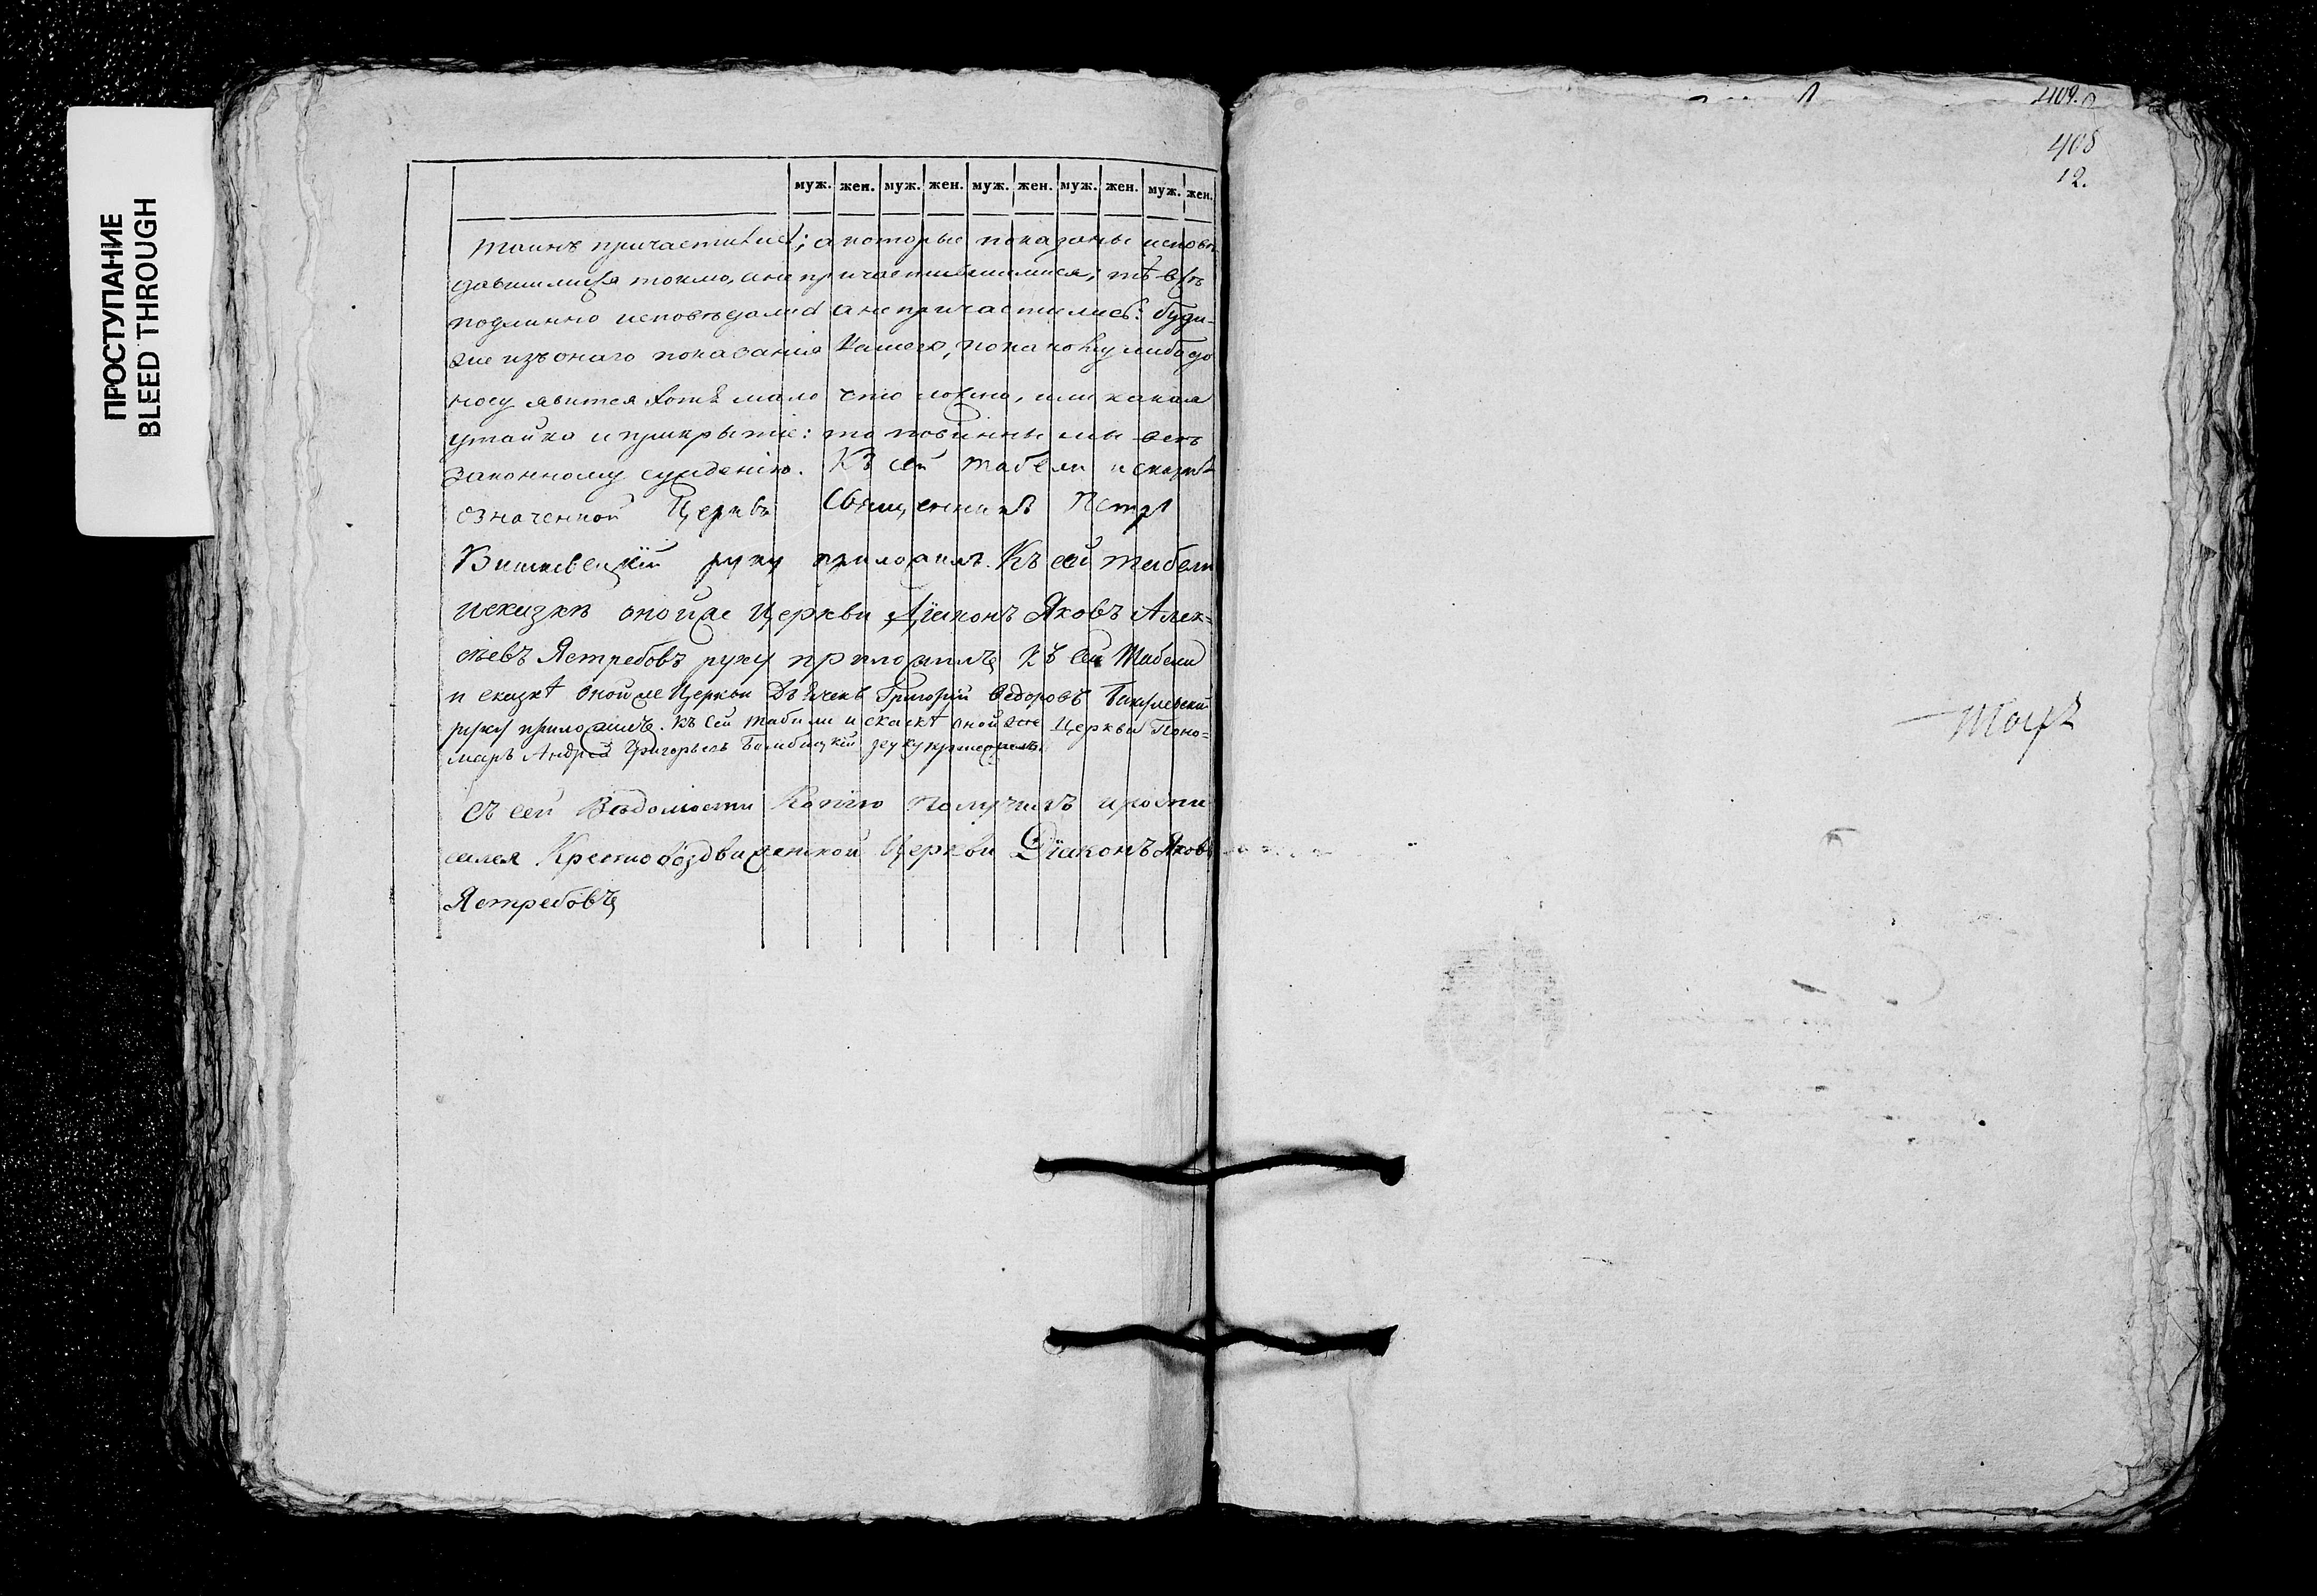 ПРОСТУПАНИЕ
BLEED THROUGH
муж. жен. муж. жен. муж. жен. муж. жен. муж. жен.
таинъ причастилися; а которые показаны испове
давшимися токмо, а не причастившимися; тѣ всѣ
подлинно исповѣдались а не причастились: буди-
же изъ онаго показанія нашего, по какому либо до
носу явится хотя мало что ложно, или какая
утайка и прикрытіе: то повинны мы всѣ
законному сужденію. Къ сей табели и сказкѣ
означенной Церкви Священникъ Петръ
руку приложилъ. Къ сей табели
и сказкѣ оной же Церкви Діаконъ Яковъ Алек-
сѣевъ Ястребовъ руку приложилъ Къ сей Табели
и сказкѣ оной же Церкви Дьячекъ Григорій Федоровъ
руку приложилъ. Къ сей табели и сказкѣ оной же Церкви Поно-
марь Андрей Григорьевъ руку приложилъ.
Съ сей Вѣдомости Копію получилъ и роспи
сался Крестовоздвиженской Церкви Діаконъ Яковъ
Ястребовъ
409.
408
12.